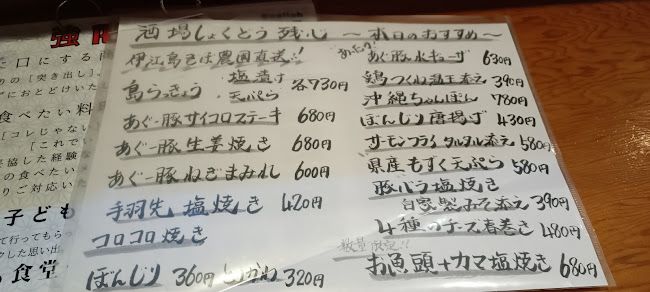 酒場しょくとう残心 ~本日のおすすめ~
伊江島玉城農園直送!!
島らっきょう 塩漬け 天ぷら 各730円
あぐー豚サイコロステーキ 680円
あぐー豚生姜焼き 680円
あぐー豚ねぎまみれ 600円
手羽先塩焼き 420円
コロコロ焼き
ぼんじり 360円 とりかわ 320円
あぐー豚水キョーザ 630円
鶏つくね温玉添え 390円
沖縄ちゃんぽん 780円
ぼんじり唐揚げ 430円
サーモンフライタルタル添え 580円
県産もずく天ぷら 580円
豚バラ塩焼き
自家製みそ添え 390円
4種のチーズ春巻き 480円
数量限定!!
お魚頭+カマ塩焼き 680円
強
た口にする
の[突き出し]
アにおとどけいた
食べたい料
[コレじゃない
[これでい
妥協した経験な
りご対応いた
子ども
て行ってもらっ
クした思い出
る食堂